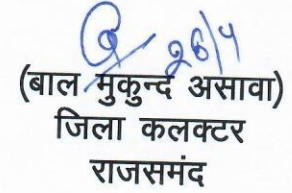 26/4
(बाल मुकुन्द असावा)
जिला कलक्टर
राजसमंद